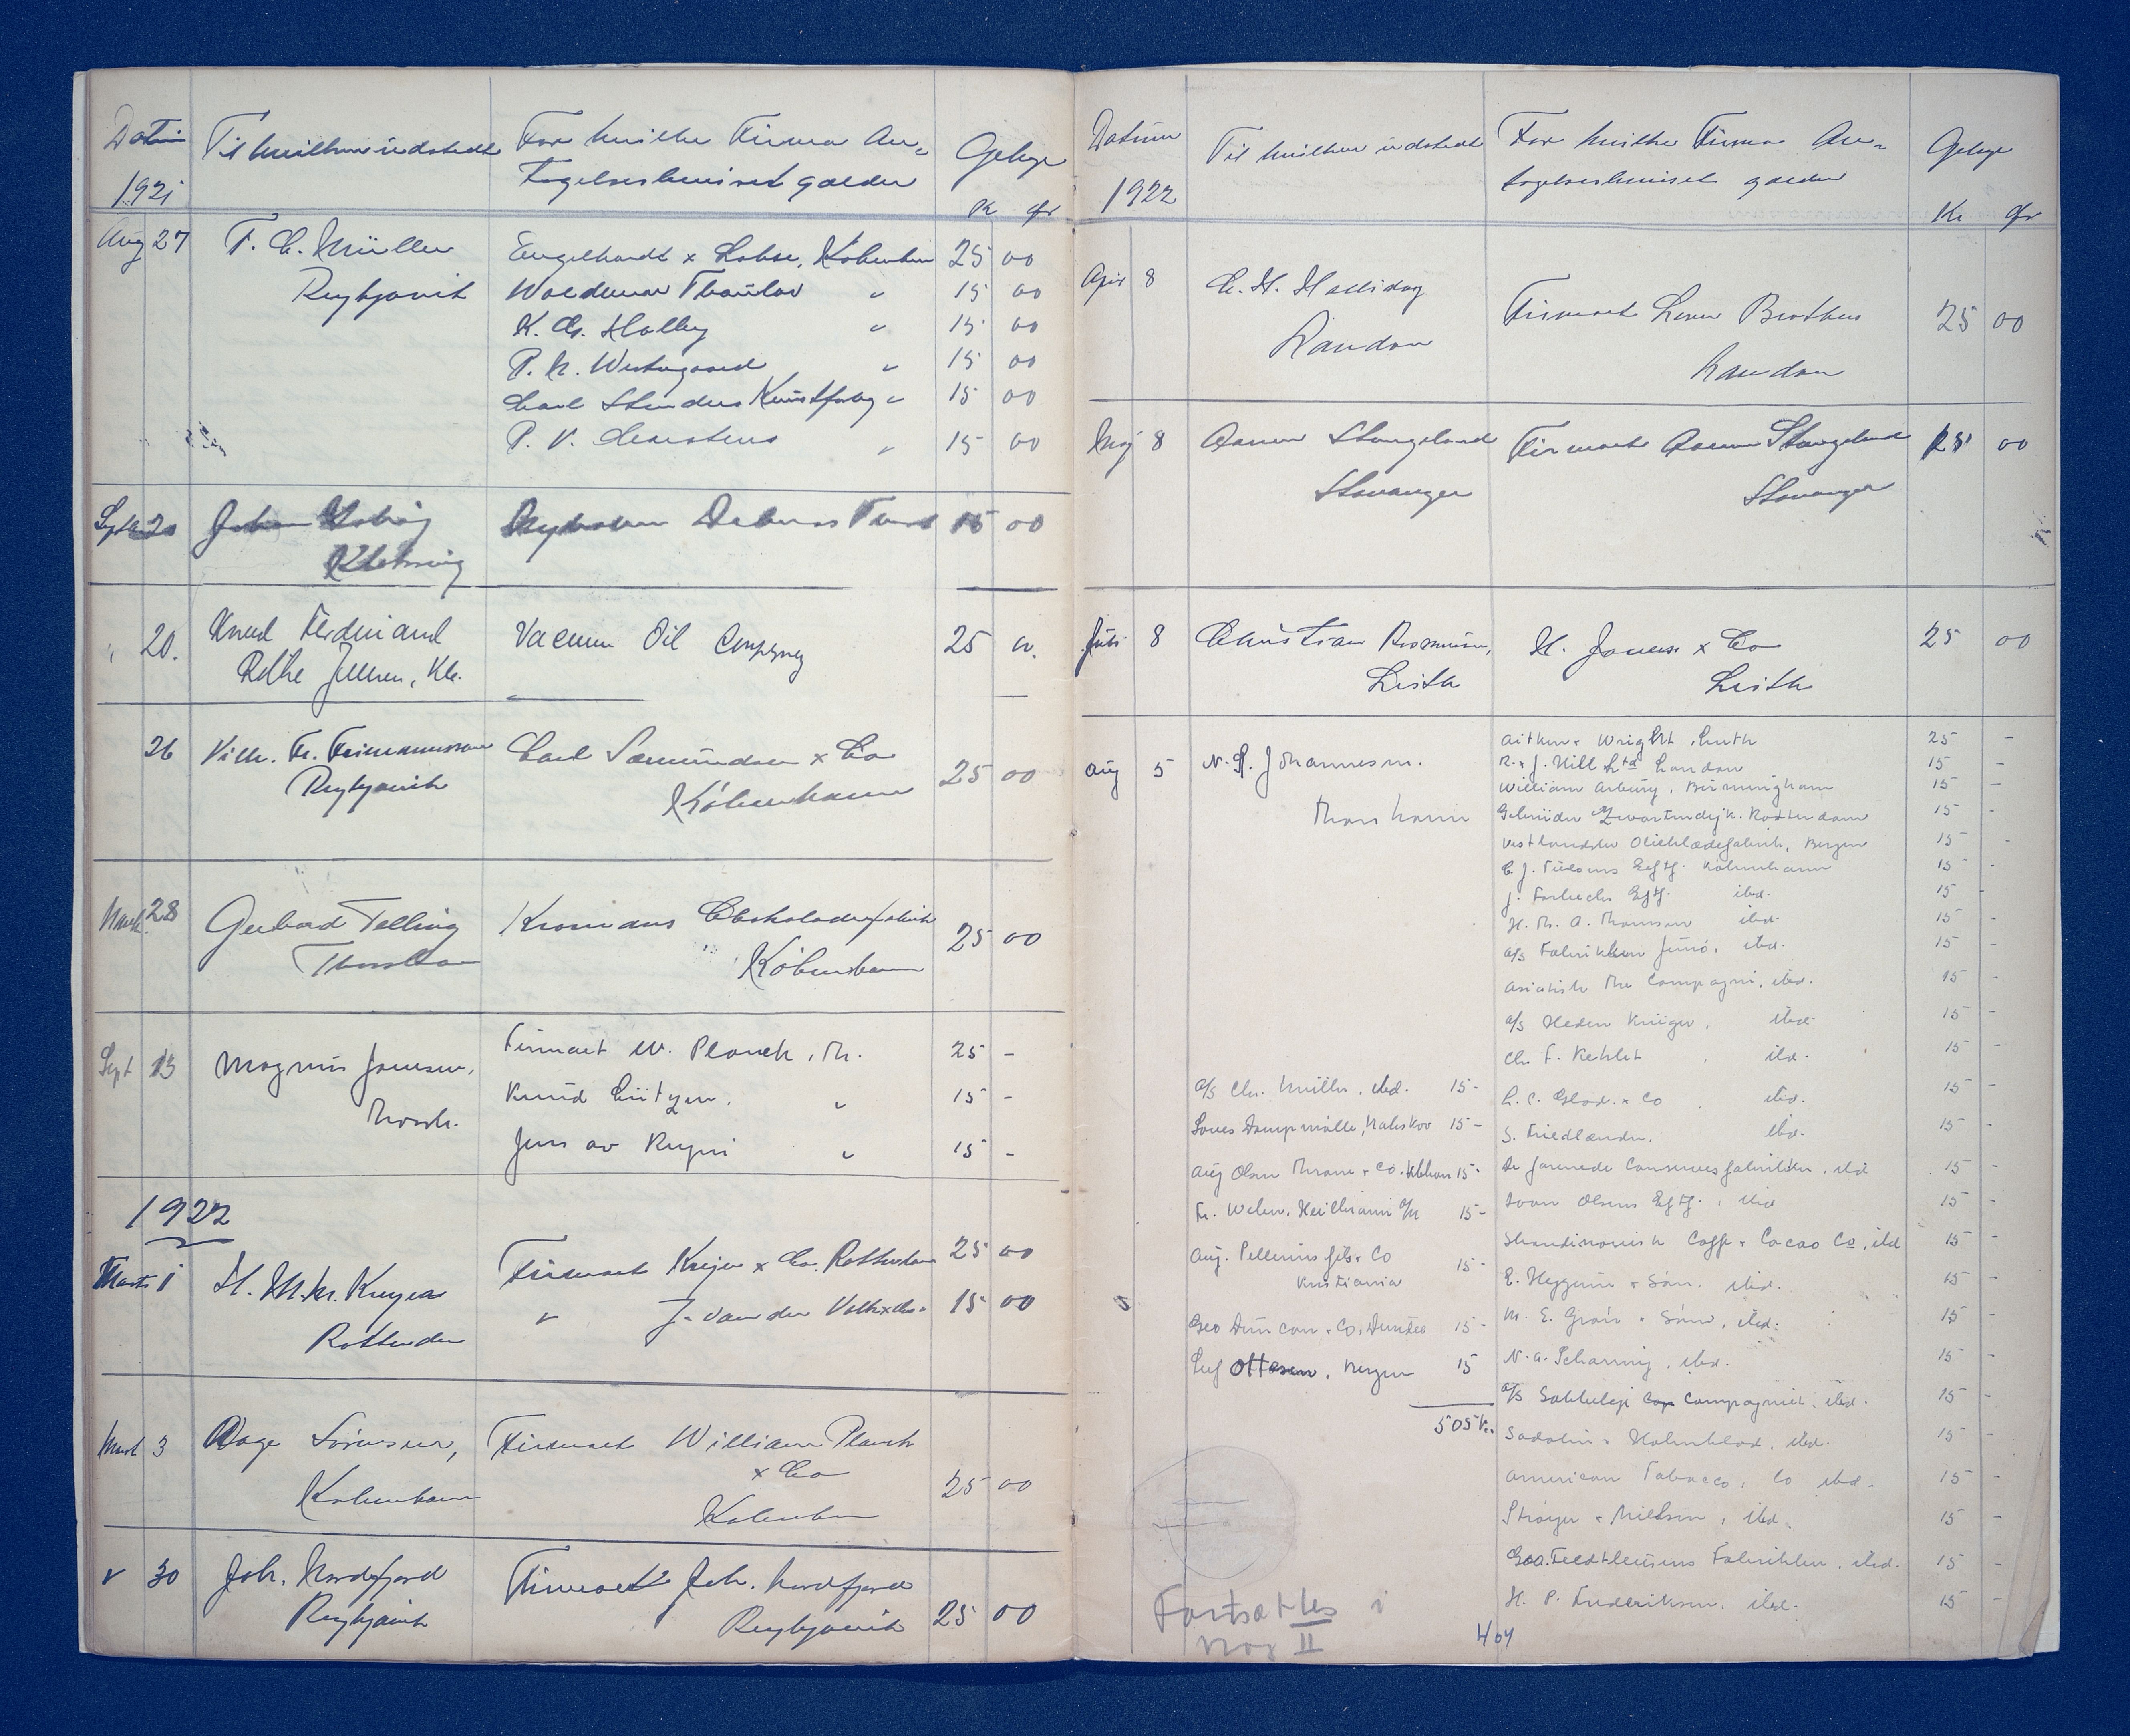 Datum
1921
Til hvilken udstedt
For hvilke Firma An-
tagelsesbeviset gælder
Gebyr
Kr Ør
Aug 27 T. C. Müller Engelhardt & Lohse, København 25 00
Reykjavik Waldemar Thaulov " 15 00
K. G. Holby " 15 00
P. M. Westergaard " 15 00
Carl Stenders Kunstforlag " 15 00
P. V. Carstens " 15 00
Septb 20 Johan 15 00
" 20. Knud Ferdinand Vacuum Oil Company 25 00.
Rothe Jensen, Kbh.
26 Vilh. Fr. Frimannsson Carl Sæmundsen & Co 25 00
Reykjavik København
28 Gerhard Telling Kromans Chokoladefabrik 25 00
København
Sept 13 Magnus Joensen, Firmaet W. Planck, Th. 25 -
Thorsh. Knud Lützen, " 15 -
Jens av Reyni " 15 -
1922
Marts 1 H. M. M. Kreyer Firmaet Kreyer & Co, Rotterdam 25 00
Rotterdam " J. van der 15 00
Marts 3 Aage Sørensen, Firmaet William Planck
& Co 25 00
København København
" 30 Joh. Nordfjord Firmaet Joh. Nordfjord
Reykjavik Reykjavik 25 00
Datum
1922
Til hvilken udstedt
For hvilke Firma An-
tagelsesbeviset gælder
Gebyr
Kr Ør
April 8 C. H. Halliday Firmaet Lever Brothers 25 00
London London
Maj 8 Aanen Stangeland Firmaet Aanen Stangeland 25 00
Stavanger Stavanger
Juli 8 Christian Rasmussen, H. Jensen & Co 25 00
Leith Leith
Aug 5 N. J. Johannesen. Aitken & Wright, Leith 25 -
Thorshavn R. & J. Hill Ltd London 15 -
William Asbury, Birmingham 15 -
Gebrüder Zwartendijk, Rotterdam 15 -
Vestlandske Olieklædefabrik, Bergen 15 -
Eftf. København 15 -
J. Forbechs Eftf. ibd. 15 -
H. Th. A. Thomsen ibd. 15 -
A/S Fabrikken Juno, ibd. 15 -
Asiatisk The Compagni, ibd. 15 -
A/S Heden Krüger, ibd. 15 -
Ch. F. Kehlet, ibd. 15 -
L. C. Glad & Co, ibd. 15 -
S. Friedlænder, ibd. 15 -
De forenede Conservesfabrikker, ibd 15 -
Ivar Olsens Eftf., ibd 15 -
Skandinavisk Caffe & Cacao Co, ibd 15 -
E. Heggum & Søn, ibd. 15 -
M. E. Grøn & Søn, ibd. 15 -
N. A. Scharning, ibd. 15 -
A/S Compagniet, ibd. 15 -
Sadolin & Holmblad, ibd. 15 -
American Tobacco, Co ibd. 15 -
Strøyer & Nielsen, ibd. 15 -
Fabrikker, ibd. 15 -
H. P. Frederiksen, ibd. 15 -
A/S Chr. Møller, ibd. 15 -
Loues Dampmølle, Nakskov 15 -
Aug Olsen Thrane & Co, Kbhvn 15 -
Fr. 15 -
Aug. Pellerins fils & Co 15 -
Kristiania
Geo Duncan & Co, Dundee 15 -
Leif Ottesen, Bergen 15
505 Kr.
Fortsættes i
II